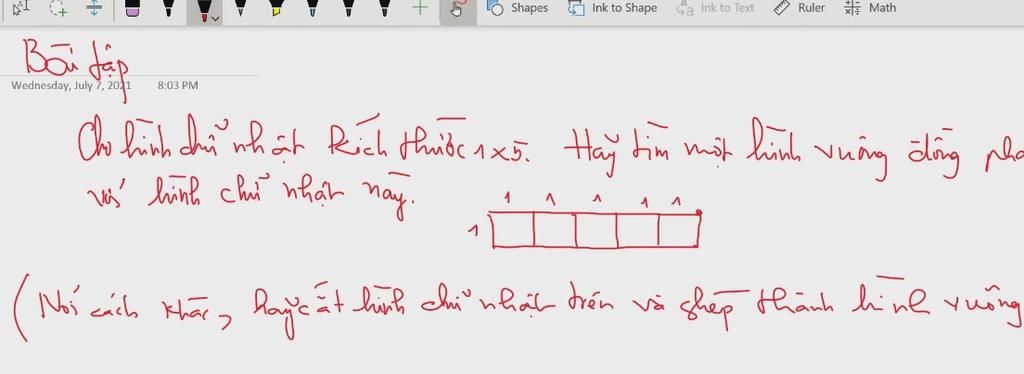 Shapes Ink to Shape Ink to Text Ruler Math
Bài tập
Wednesday, July 7, 2021 8:03 PM
Cho hình chữ nhật kích thước 1×5. Hãy tìm một hình vuông đồng
với hình chữ nhật này.
1 1 1 1 1
1
(Nói cách khác, hãy cắt hình chữ nhật trên và ghép thành hình vuông